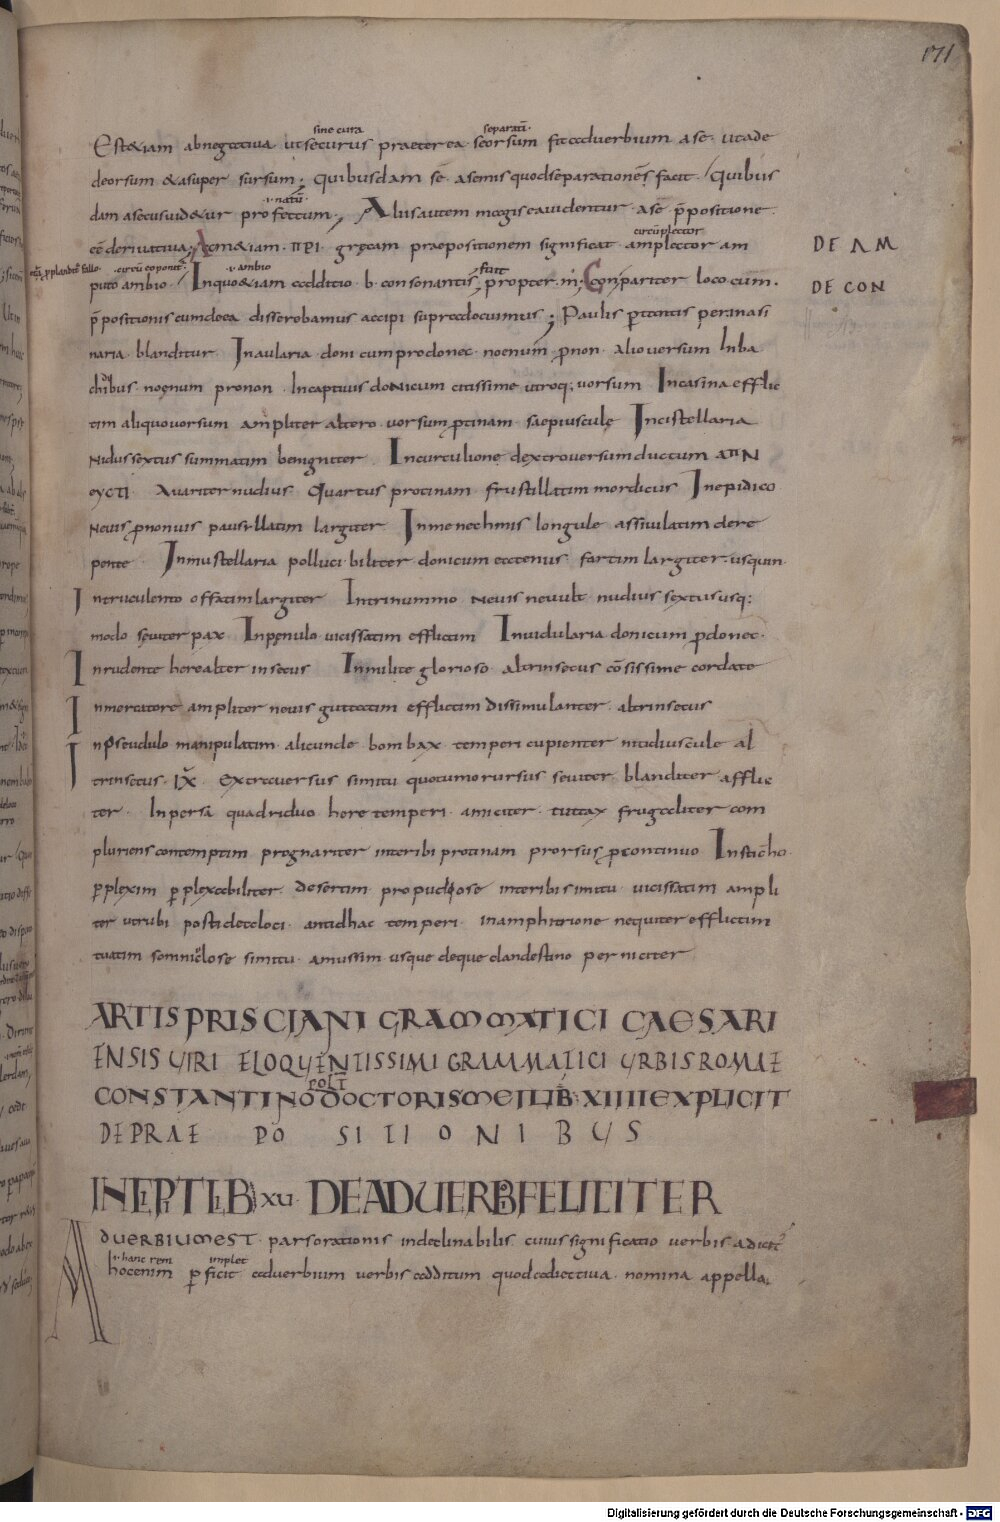 171
sine cura separati
Est & iam abnegatiua ut securus praeterea seorsum fit aduerbium a se ut a de
deorsum & a super sursum; quibusdam se a semis quod separationem facit. Quibus
i. natu
dam a secus uid&ur profectum; Aliis autem magis ea uidentur a se p̄positione
circū plector
eē deriuatiua; Am & iam ΠΕΡΙ grecam praepositionem significat amplector am
DE AM
circū i. ambio fuit
puto ambio. In quo & iam additio b consonantis propter m; Con pariter loco cum
DE CON
p̄positionis cum de ea disserebamus accipi supra docuimus; Paulis
naria blanditur In aularia doni cum pro donec noenum p̄ non alio uorsum In ba
chidibus noenum pro non In captiuis doNicum citissime utroq; uorsum In casina efflic
tim aliquouorsum ampliter altero uorsum protinam saepiuscule In cistellaria
Nidus sextus summatim benigniter In curculione dextrouersum ductum ΑΠΝ
ΕΥCΤΙ Auariter nudius quartus protinam frustillatim mordicus In epidico
Neuis p̄ non uis pausillatim largiter In menechmis longule assiulatim dere
pente In mustellaria polluci biliter donicum fartim largiter usquin
In truculento offatim largiter In trinummo Neuis neuult nudius sextus usq:
modo seuiter pax In penulo uicissatim efflictim In uidularia donicum p̄ donec
In rudente here alter insecus In milite glorioso altrinsecus cōsissime cordate
In mercatore ampliter neuis guttatim efflictim dissimulanter altrinsecus
In pseudulo manipulatim alicunde bombax temperi cupienter nitidiuscule al
trinsecus IX extrauersus simitu quotumo rursus seuiter blanditer afflic
ter In persa quadriduo here temperi amiciter tuttax frugaliter com
pluriens contemptim prognariter interibi protinam prorsus p̄ continuo In sticho
p̄plexim p̄plexabiliter desertim propudiose interibi simitu uicissatim ampli
ter utrubi postideteloci antidhac temperi in amphitrione nequiter efflictim
tuatim somniculose simitu amussim usque deque clandestino perniciter
ARTIS PRISCIANI GRAMMATICI CAESARI
ENSIS UIRI ELOQUENTISSIMI GRAMMATICI URBIS ROMAE
POLI
CONSTANTINO DOCTORIS MEI LIB XIIII EXPLICIT
DE PRAE PO SI TI O N I B U S
INCIPIT LIB XU DE ADUERB FELICITER
ADUERBIUM EST pars orationis indeclinabilis cuius significatio uerbis adicit
i. hanc rem implet
hoc enim p̄ficit aduerbium uerbis additum quod adiectiua nomina appella
Digitalisierung gefördert durch die Deutsche Forschungsgemeinschaft - DFG